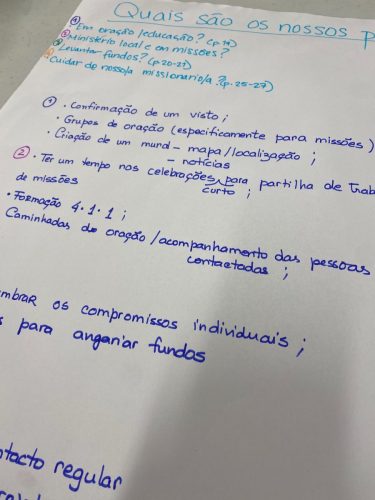 Quais são os nossos
① Em oração/educação? (p.19)
② Ministério local e em missões?
③ Levantar fundos? (p.20-21)
④ Cuidar do nosso/a missionário/a? (p.25-27)
① • Confirmação de um visto;
• Grupos de oração (especificamente para missões)
• Criação de um mural – mapa/localização;
– notícias
② • Ter um tempo nos celebrações para partilha de
curto;
de missões
• Formação 4.1.1;
Caminhadas de oração/acompanhamento das pessoas
contactadas;
os compromissos individuais;
para angariar fundos
regular